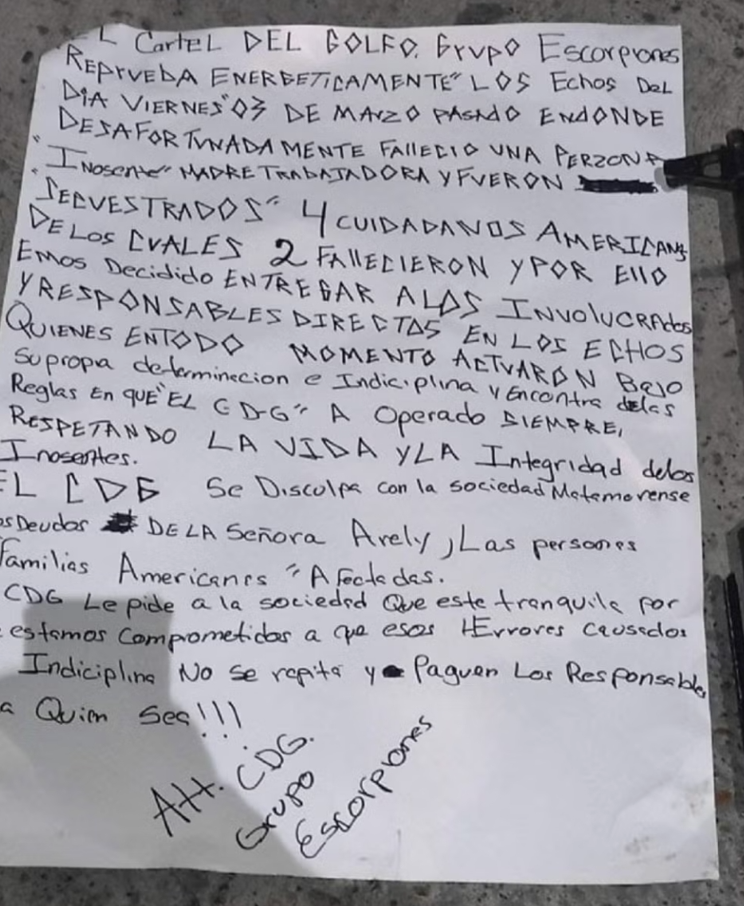 EL Cartel DEL GOLFO. Grupo Escorpiones
REPrUEBA ENERGETICAMENTE" LOS Echos DEL
DiA VIERNES" 03 DE MARZO PASADO ENdONDE
DESAFORTUNADAMENTE FAllECIO UNA PERZONA
"INosente" MADRE TRABAJADORA Y FUERON
"SECUESTRADOS" 4 CUIDADANOS AMERICANS
DE LOS CUALES 2 FAllECIERON Y POR Ello
Emos Decidido ENTREGAR A LOS INVOLUCRAdos
Y RESPONSABLES DIRECTOS EN LOS ECHOS
QUIENES EN TODO MOMENTO ACTUARON BAJO
Su propia determinacion e Indiciplina y Encontra delas
Reglas En QUE "EL CDG" A Operado SIEMPRE,
RESPETANDO LA VIDA Y LA Integridad delos
Inosentes.
EL CDG Se Disculpa con la sociedad Matamorense
os Deudos DE LA Señora Arely, Las persones
familias Americanas "Afectadas.
CDG Le pide a la sociedad Que este tranquila por
estamos Comprometidos a que esos Errores Causados
Indiciplina No se repita y Paguen Los Responsables
a Quien Sea!!!
Att. CDG.
Grupo
Escorpiones